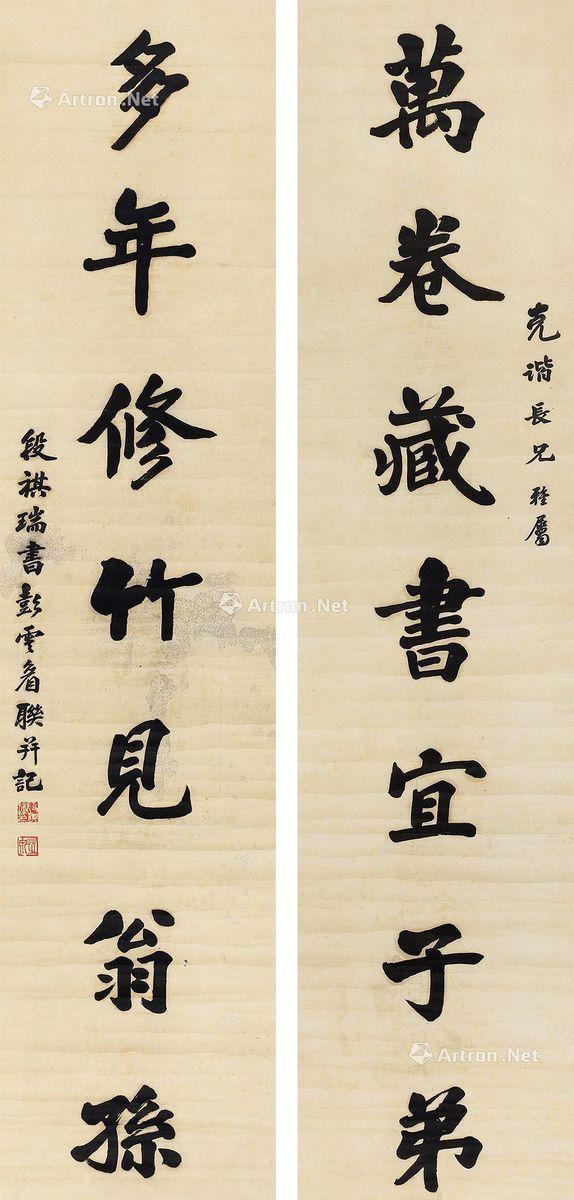 萬卷藏書宜子弟
克諧長兄雅屬
多年修竹見翁孫
段祺瑞書彭雲眉聯并記
Artron.Net
Artron.Net
Artron.Net